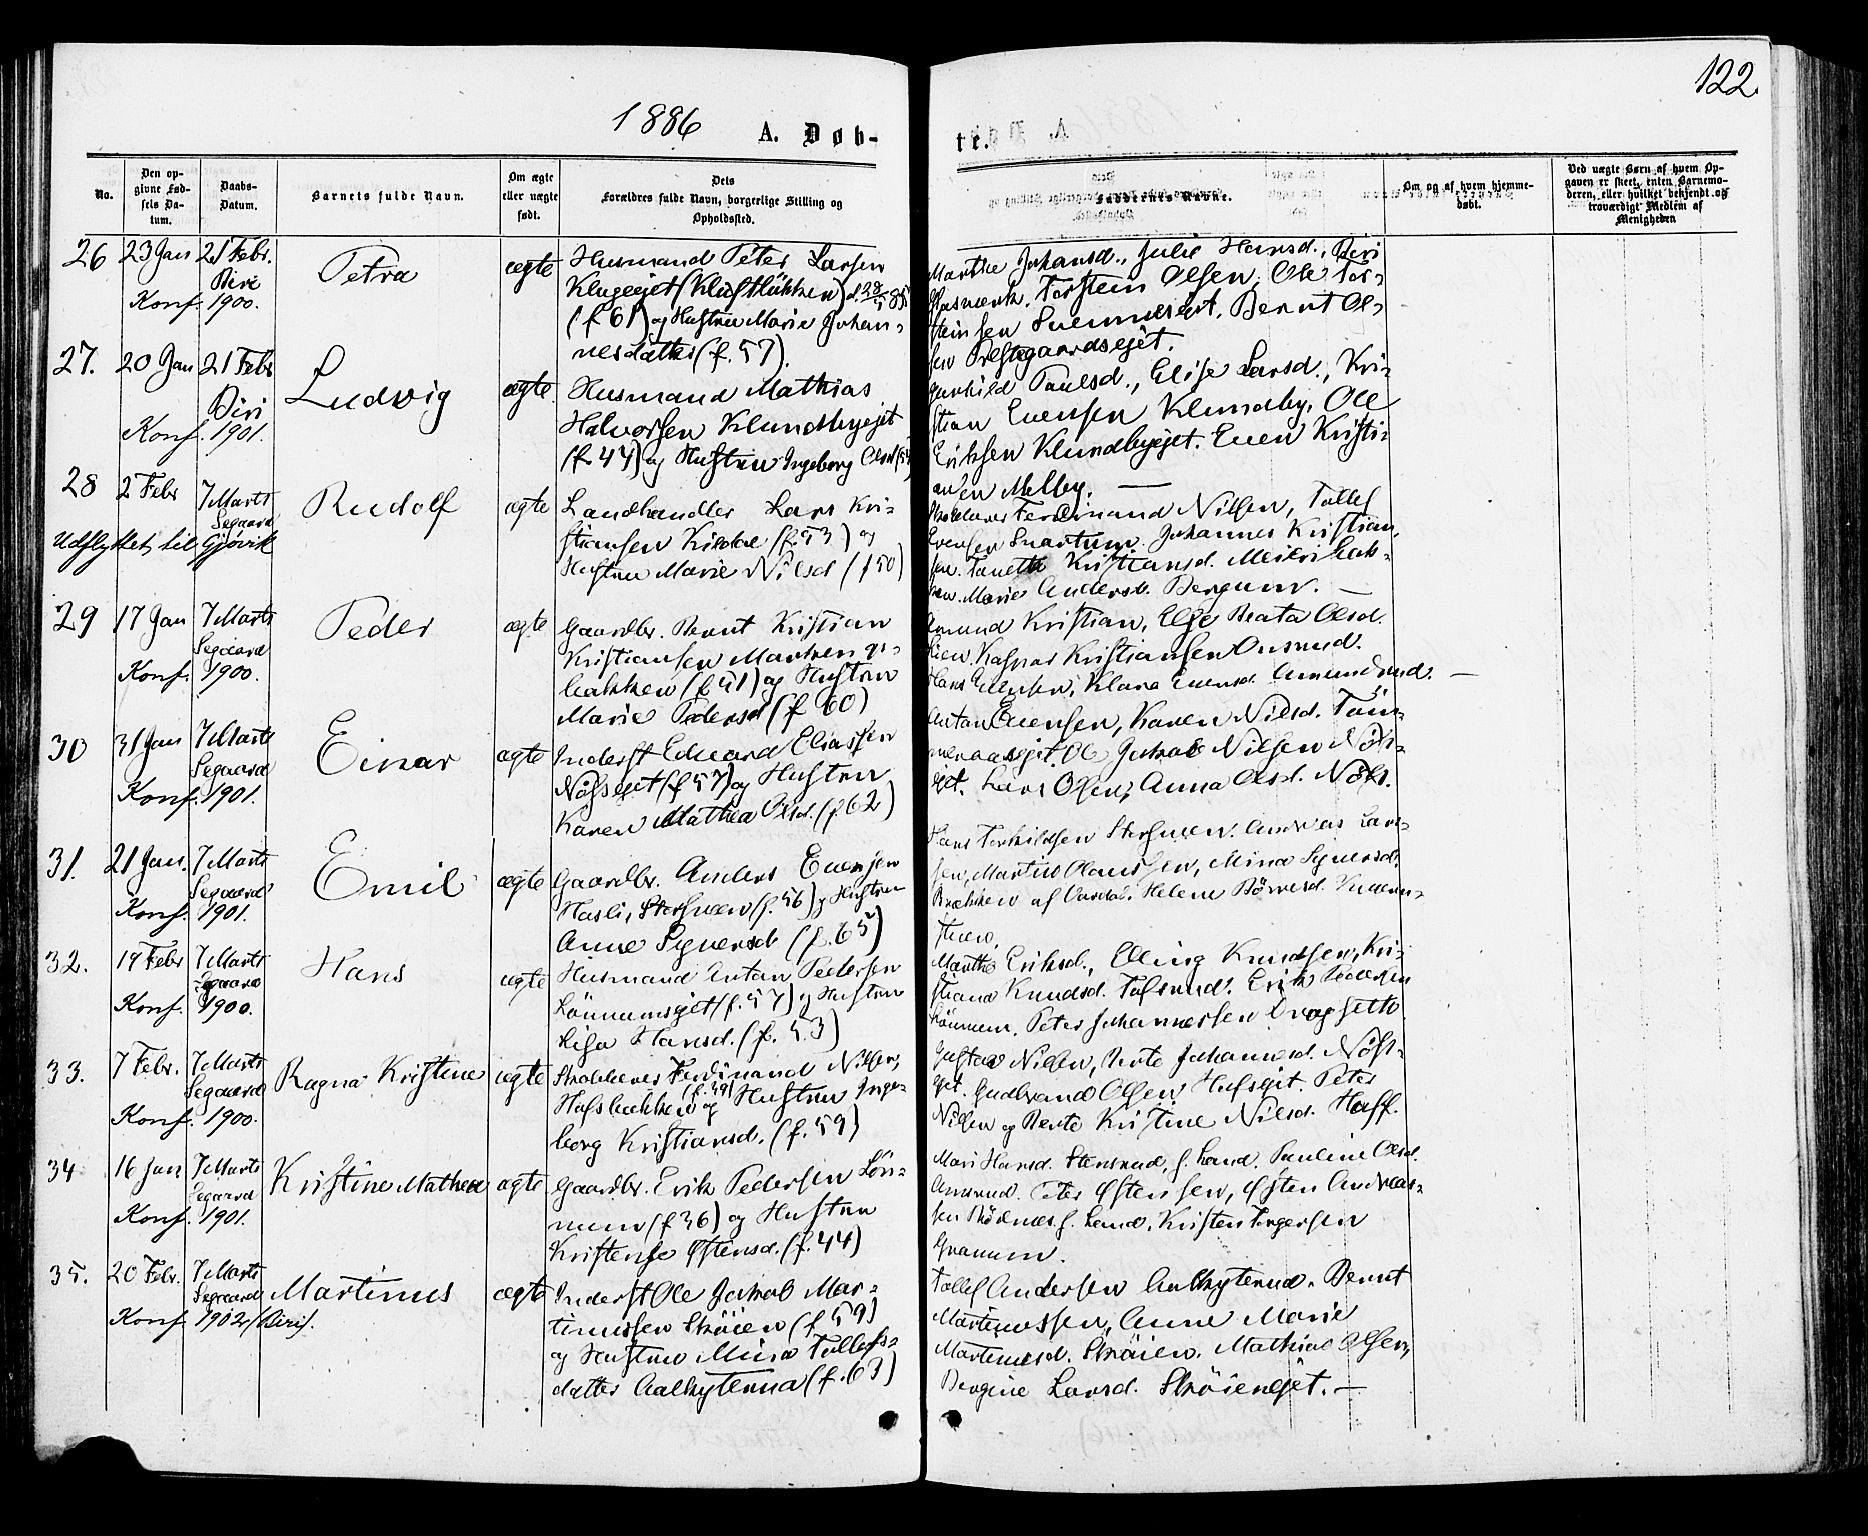 122.
1886
A. Døb-
te.
No.
Den opgivne Fødsels Datum.
Daabs-Datum.
Barnets fulde Navn.
Om ægte eller uægte født.
Dets Forældres fulde Navn, borgerlige Stilling og Opholdssted.
Faddernes Navne.
Om og af hvem hjemmedøbt.
Ved uægte Børn af hvem Opgaven er skeet, enten Barnemoderen, eller hvilket bekjendt og troværdigt Medlem af Menigheden
26 23 Jan 21 Febr. Petra ægte Husmand Peter Larsen
Biri
Konf. 1900.
(f 61) og Hustru Marie Johan-
nesdatter (f. 57).
Marthe Johansd., Julie Hansd., Biri
Torstein Olsen, Ole Tor-
stensen Bernt Ol-
sen Prestegaardsejet.
27. 20 Jan 21 Febr Ludvig ægte Husmand Mathias
Biri
Konf. 1901.
Halvorsen Klundbyejet
(f. 47) og Hustru Ingeborg Olsd
Gunhild Paulsd., Elise Larsd., Kri-
stian Evensen Klundby, Ole
Eriksen Klundbyejet. Even Kristi-
ansen Melby. —
28 2 Febr 7 Marts Rudolf ægte Landhandler Lars Kri-
Segaard
Udflyttet til Gjøvik
stiansen (f. 53) og
Hustru Marie Nilsd (f 50)
Ferdinand Nilsen, Tollef
Evensen Snartum. Johannes Kristian-
sen. Kristiansd.
Marie Andersd. Bergum. —
29 17 Jan 7 Marts Peder ægte Gaardbr. Bernt Kristian
Segaard
Konf. 1900.
Kristiansen
bakken (f 51) og Hustru
Marie Pedersd (f 60)
Amund Kristian, Else Beata Olsd.
Lien, Kaspar Kristiansen Onsrud.
Hans Klara Evensd. Amundrud. —
30 31 Jan 7 Marts Einar ægte Inderst Edvard Eliassen
Segaard
Konf. 1901.
Nøssejet (f 57) og Hustru
Karen Mathea Olsd. (f. 62)
Anton Evensen, Karen Nilsd.
Ole Jakob Nilsen Nøss-
ejet. Lars Olsen, Anna Olsd. Nøss.
31. 21 Jan. 7 Marts Emil ægte Gaardbr. Anders Evensen
Segaard
Konf. 1901.
Hasli, (f. 56) og Hustru
Anne Syversd (f. 65)
Hans Andreas Lar-
sen, Martin Olaussen, Mina Syversd.
Brækken af Vardal. Helene
32. 19 Febr 7 Marts Hans ægte Husmand Anton Pedersen
Segaard
Konf. 1900.
Lønnumsejet (f. 57) og Hustru
Lisa Hansd. (f. 53)
Marthe Eriksd., Elling Knudsen, Kri-
stiane Knudsd. Erik Pedersen
Lønnum. Peter Johannessen
33. 7 Febr. 7 Marts Ragna Kristine ægte Skolelærer Ferdinand Nilsen,
Segaard
Konf. 1900.
Hofsbakken (f. 59) og Hustru Inge-
borg Kristiansd. (f. 59)
Gustav Nilsen, Berte Johannesd. Nøss-
ejet. Gudbrand Olsen Hofsejet. Peter
Nilsen og Berte Kristine Nilsd. Hoff.
34 16 Jan 7 Marts Kristine Mathea ægte Gaardbr. Erik Pedersen Løn-
Segaard
Konf. 1901.
num (f 36) og Hustru
Kristense Østensd. (f. 44)
Mari Hansd. Stensrud, S. Land. Pauline Olsd.
Amsrud. Peter Østensen, Østen Andreas-
sen S. Land, Kristen Torgersen
Granum.
35. 20 Febr. 7 Marts Martinus ægte Inderst Ole Jakob Mar-
Segaard
Konf 1902 (Biri).
tinussen Skøien (f. 59)
og Hustru Mina Tollefs-
datter (f. 63)
Tollef Andersen Bernt
Martinussen, Anne Marie
Martinusd. Skøien. Mathias Olsen,
Bergine Larsd. Skøienejet. —